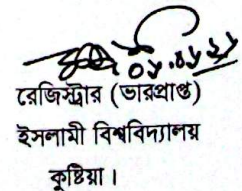 রেজিস্ট্রার (ভারপ্রাপ্ত)
ইসলামী বিশ্ববিদ্যালয়
কুষ্টিয়া।